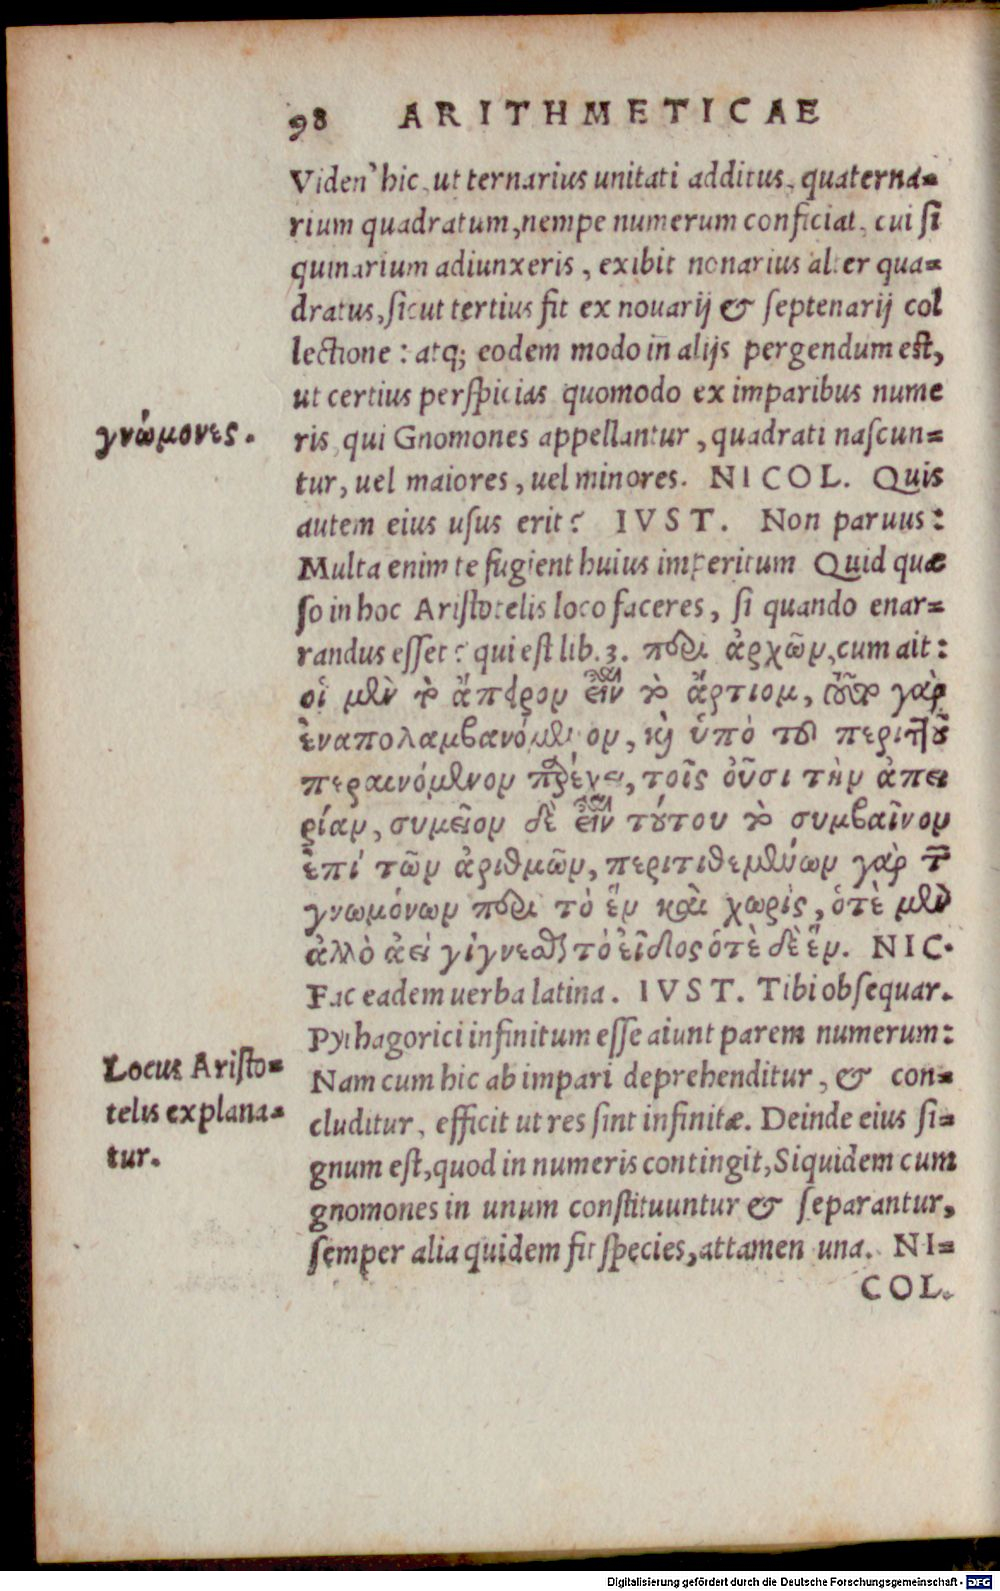 98 ARITHMETICAE
Viden' hic, ut ternarius unitati additus, quaterna=
rium quadratum, nempe numerum conficiat, cui si
quinarium adiunxeris, exibit nonarius alter qua=
dratus, sicut tertius fit ex nouarij & septenarij col
lectione: atq; eodem modo in alijs pergendum est,
ut certius perspicias quomodo ex imparibus nume
γνώμονες.
ris, qui Gnomones appellantur, quadrati nascun=
tur, uel maiores, uel minores. NICOL. Quis
autem eius usus erit? IVST. Non paruus:
Multa enim te fugient huius imperitum Quid quæ
so in hoc Aristotelis loco faceres, si quando enar=
randus esset? qui est lib. 3. περὶ ἀρχῶν, cum ait:
οἱ μὲν τὸ ἄπειρον εἶναι τὸ ἄρτιον, τοῦτο γὰρ
ἐναπολαμβανόμενον, κὶ ὑπὸ τοῦ περιττοῦ
περαινόμενον παρέχει, τοῖς οὖσι τὴν ἀπει
ρίαν, συμεῖον δὲ εἶναι τούτου τὸ συμβαῖνον
ἐπί τῶν ἀριθμῶν, περιτιθεμένων γὰρ τῶν
γνωμόνων περὶ τὸ ἓν καὶ χωρίς, ὁτὲ μὲν
ἀλλὸ ἀεί γίγνεσθαι τὸ εἶδος ὁτὲ δὲ ἕν. NIC.
Fac eadem uerba latina. IVST. Tibi obsequar.
Pythagorici infinitum esse aiunt parem numerum:
Locus Aristo=
telis explana=
tur.
Nam cum hic ab impari deprehenditur, & con=
cluditur, efficit ut res sint infinitæ. Deinde eius si=
gnum est, quod in numeris contingit, Siquidem cum
gnomones in unum constituuntur & separantur,
semper alia quidem fit species, attamen una. NI=
COL.
Digitalisierung gefördert durch die Deutsche Forschungsgemeinschaft - DFG